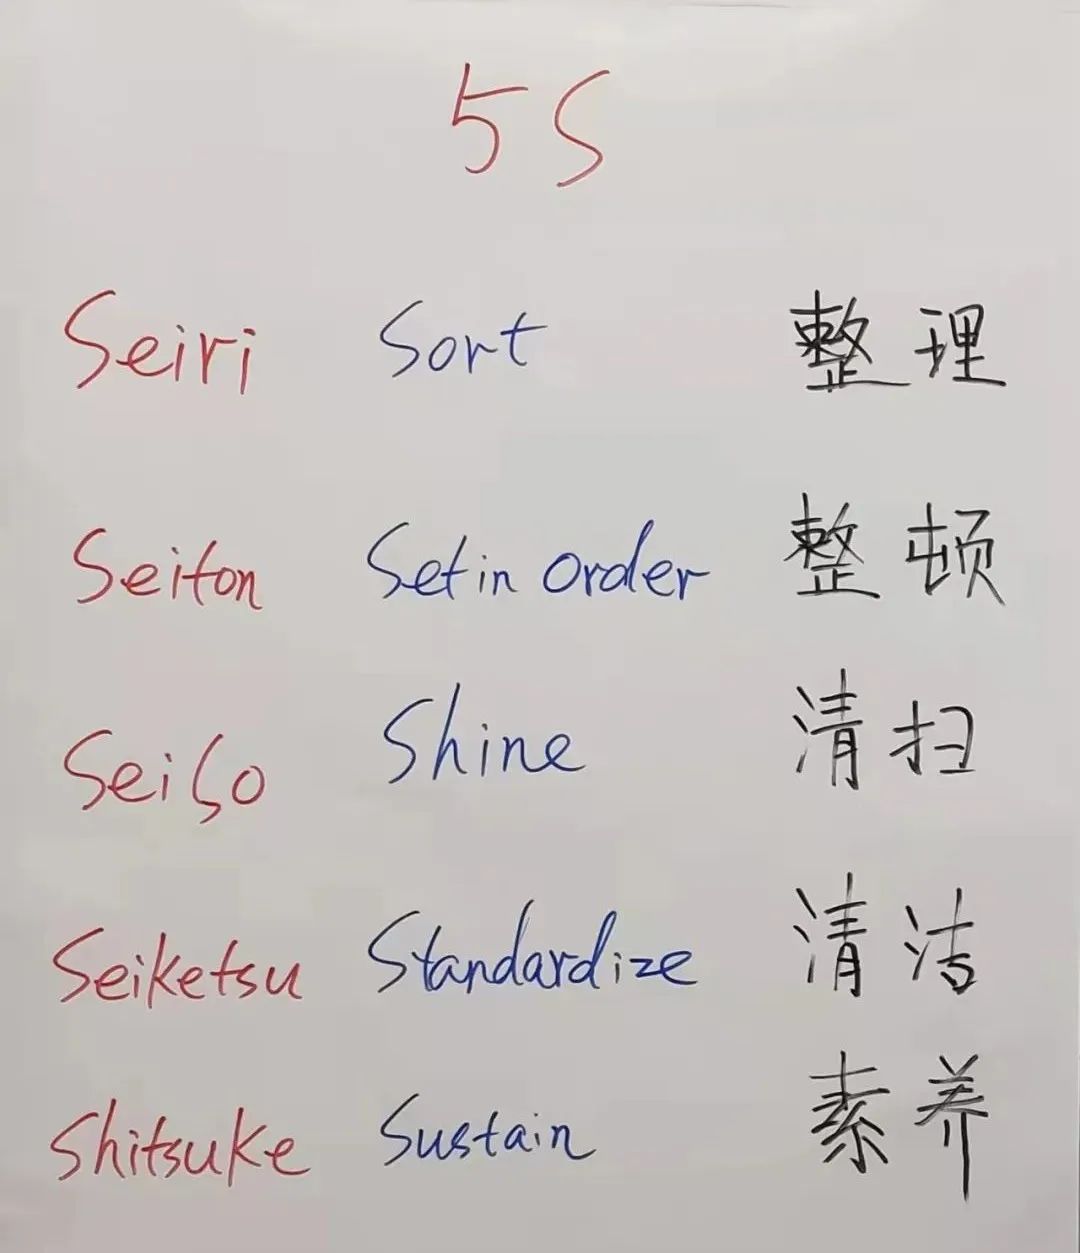 5S
Seiri Sort 整理
Seiton Set in order 整顿
Seiso Shine 清扫
Seiketsu Standardize 清洁
Shitsuke Sustain 素养